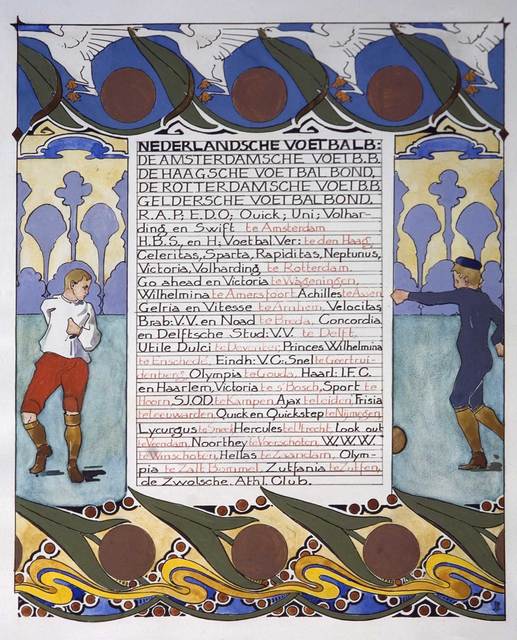 NEDERLANDSCHE VOETBALB:
DE AMSTERDAMSCHE VOETB.B.
DE HAAGSCHE VOETBALBOND,
DE ROTTERDAMSCHE VOETB.B.
GELDERSCHE VOETBALBOND.
R.A.P; E.D.O; Quick; Uni; Volhar-
ding en Swift te Amsterdam
H.B.S, en H; Voetbal Ver: te den Haag,
Celeritas, Sparta, Rapiditas, Neptunus,
Victoria, Volharding te Rotterdam.
Go ahead en Victoria te Wageningen,
Wilhelmina te Amersfoort Achilles te
Gelria en Vitesse te Arnhem, Velocitas
Brab: V.V. en Noad te Breda, Concordia
en Delftsche Stud: V.V. te Delft.
Utile Dulci te Deventer, Princes Wilhelmina
te Enschedé. Eindh: V.C; Snel te Geertrui-
denberg, Olympia te Gouda. Haarl: I.F.C.
en Haarlem, Victoria te s'Bosch, Sport te
Hoorn, S.J.O.D. te Kampen, Ajax te Leiden, Frisia
te Leeuwarden, Quick en Quickstep te Nijmegen
Lycurgus te Sneek Hercules te Utrecht, Look out
te Veendam, Noorthey te Voorschoten W.W.W.
te Winschoten, Hellas te Zaandam, Olym-
pia te Zalt Bommel, Zutfania te Zutfen,
de Zwolsche. Athl. Club.